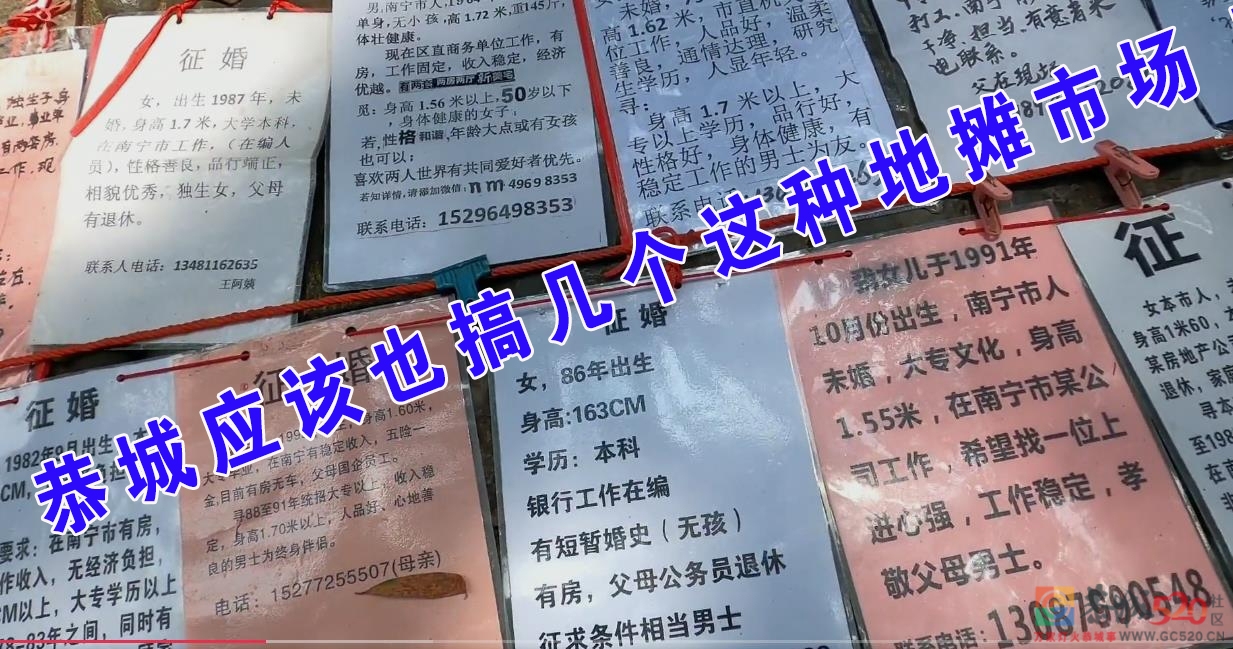 征婚
女，出生1987年，未
婚，身高1.7米，大学本科，
在南宁市工作，（在编人
员），性格善良，品行端正，
相貌优秀，独生女，父母
有退休。
联系人电话：13481162635
王阿姨
单身，无小孩，高1.72米，重145斤，
体壮健康。
现在区直商务单位工作，有
房，工作固定，收入稳定，经济
优越。有两套 两房两厅
觅：身高1.56米以上，50岁以下
，身体健康的女子，
若，性格和谐，年龄大点或有女孩
也可以；
喜欢两人世界有共同爱好者优先。
若知详情，请添加微信：nm 4969 8353
联系电话：15296498353
高1.62米，市直机关
位工作，人品好，温柔
善良，通情达理，研究
生学历，人显年轻。
寻：
身高1.7米以上，大
专以上学历，品行好，
性格好，身体健康，有
稳定工作的男士为友。
联系电话
打工、南宁
干净、担当、有意者来
电联系。
父在现场
恭城应该也搞几个这种地摊市场
征婚
1982年9月出生
要求：在南宁市有房，
作收入，无经济负担，
CM以上，大专学历以上
8-83年之间，同时有
征婚
身高1.60米，
大专毕业，在南宁有稳定收入，五险一
金，目前有房无车，父母国企员工。
寻88至91年统招大专以上，收入稳
定，身高1.70米以上，人品好、心地善
良的男士为终身伴侣。
电话：15277255507(母亲)
征婚
女，86年出生
身高:163CM
学历：本科
银行工作在编
有短暂婚史（无孩）
有房，父母公务员退休
征求条件相当男士
我女儿于1991年
10月份出生，南宁市人
未婚，大专文化，身高
1.55米，在南宁市某公
司工作，希望找一位上
进心强，工作稳定，孝
敬父母男士。
联系电话：13087690548
征
女本市人，
身高1米60，
某房地产公
退休，家庭
寻本
至198
在南
520社区
万家灯火恭城事 WWW.GC520.CN